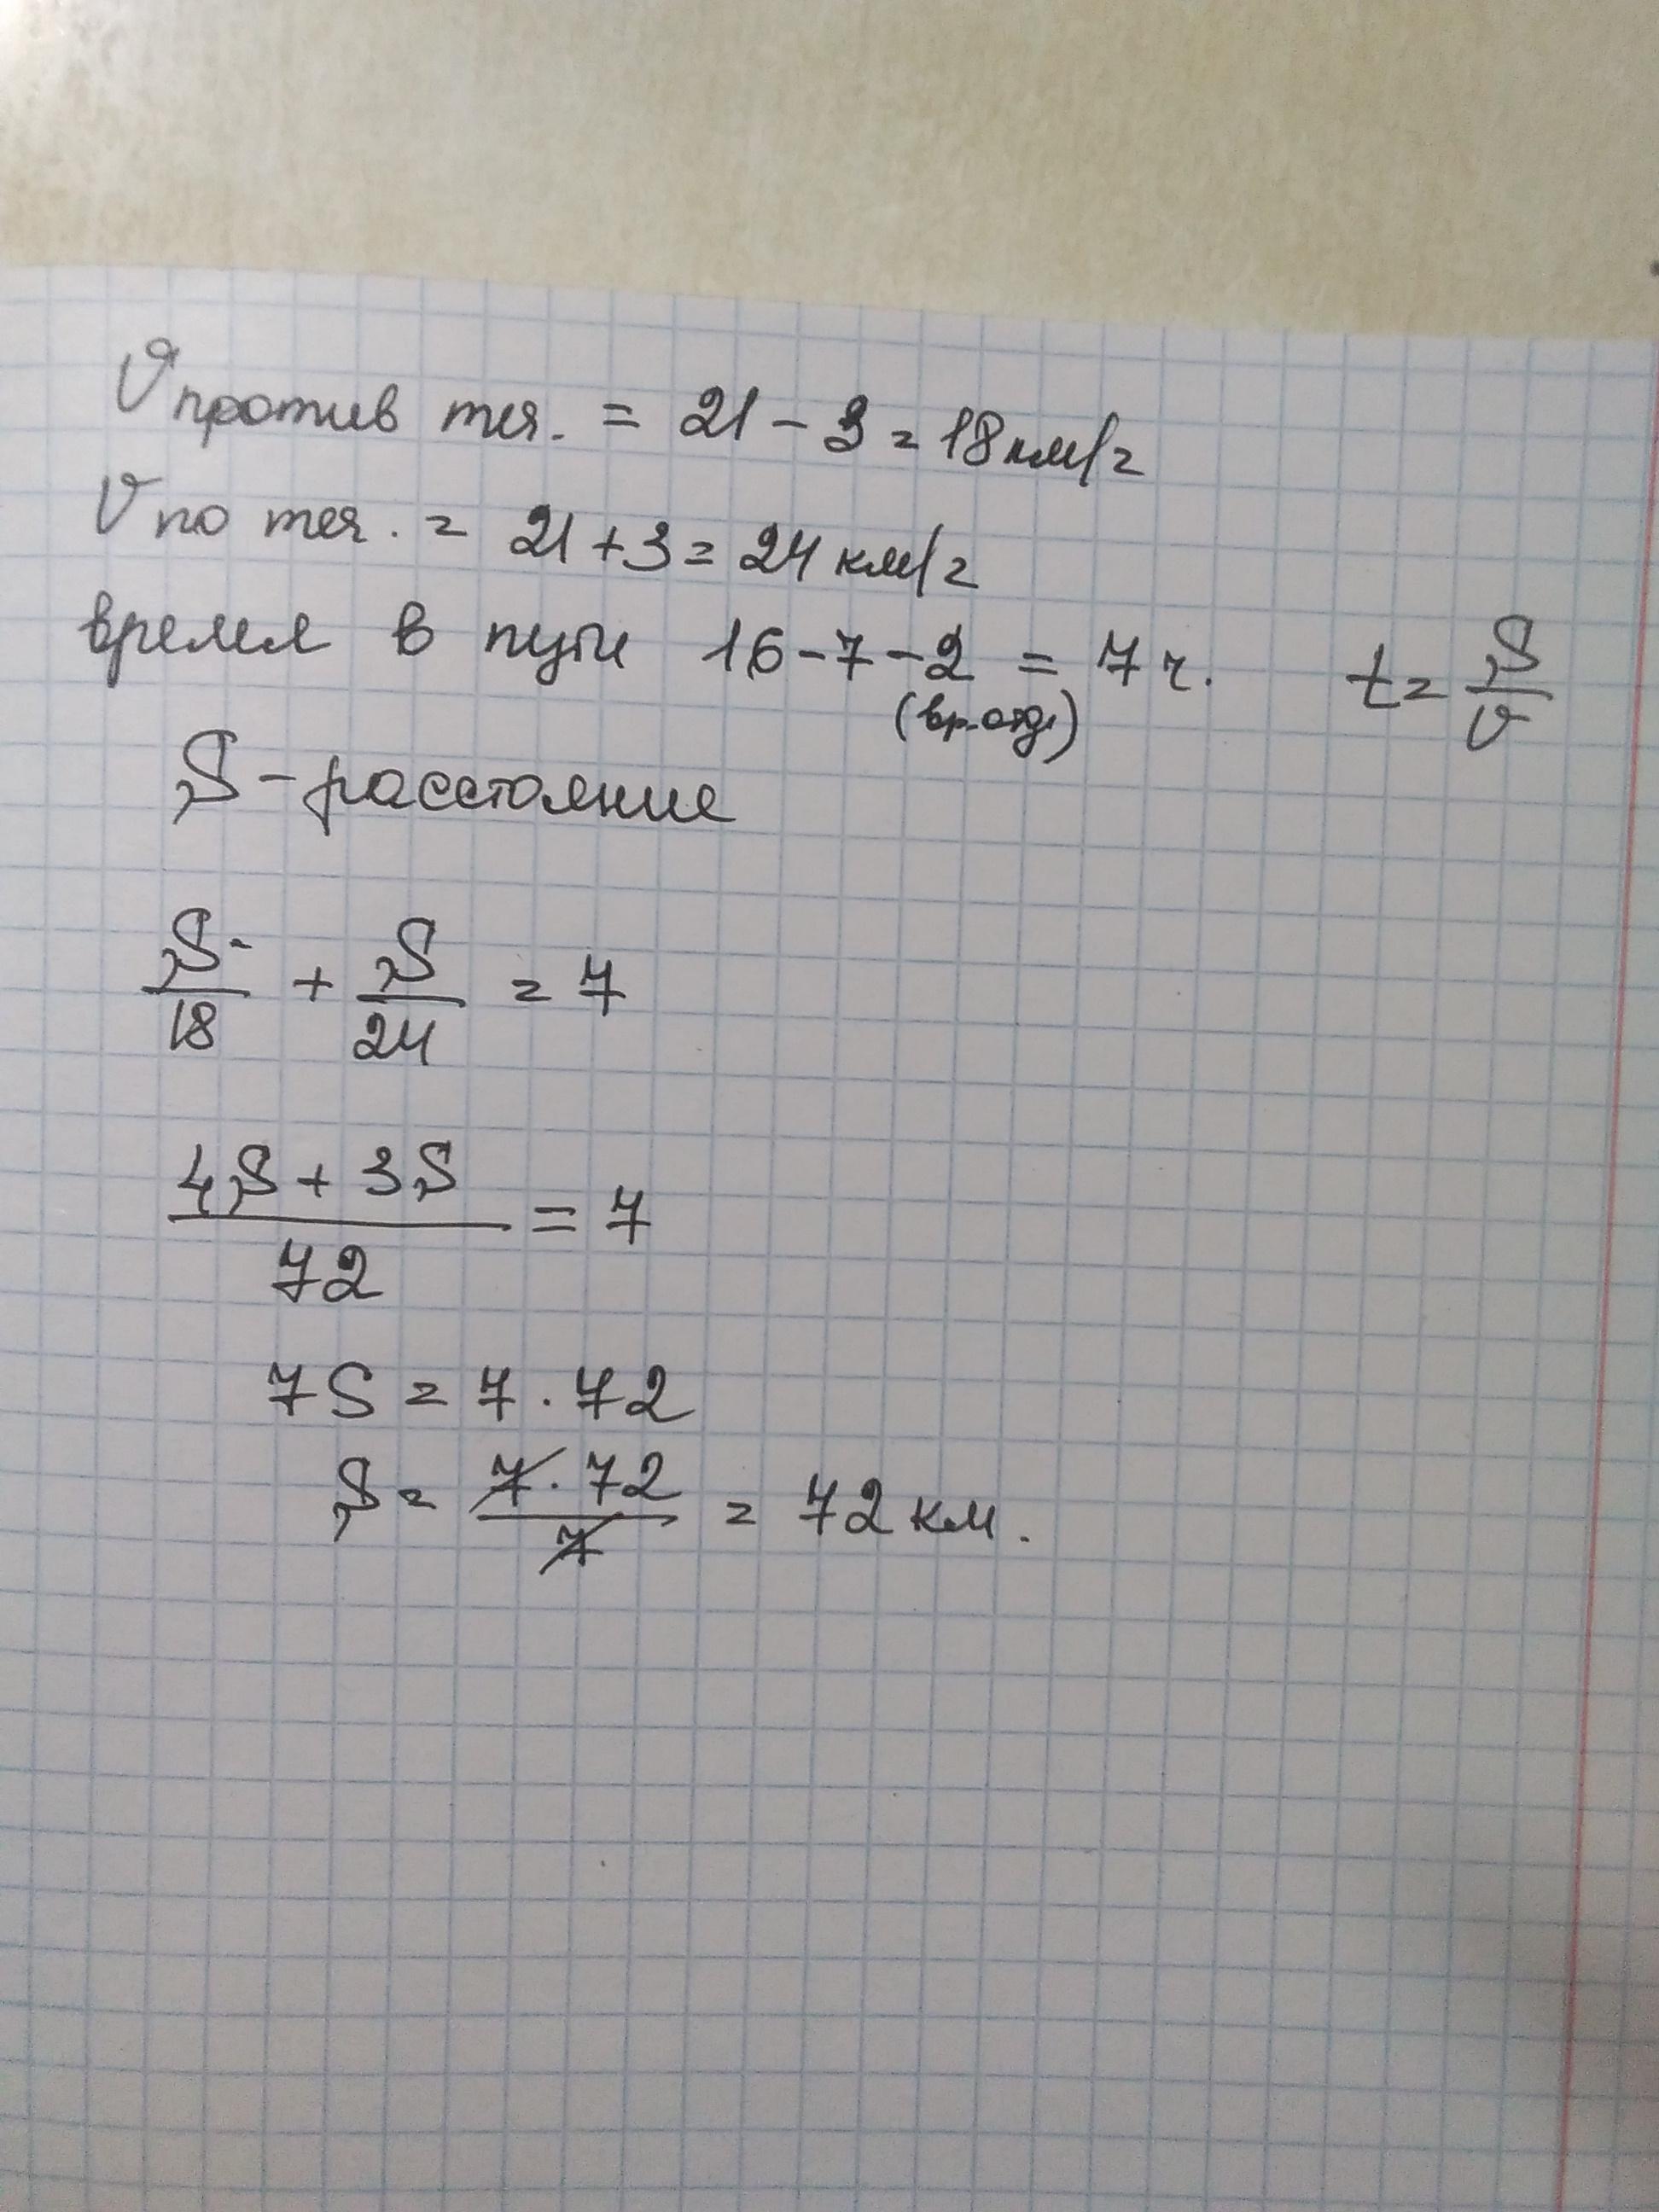 V против теч. = 21 - 3 = 18 км/г
V по теч. = 21 + 3 = 24 км/г
время в пути 16 - 7 - 2 = 7 ч. t = S/V
(вр. отд.)
S - расстояние
S/18 + S/24 = 7
(4S + 3S)/72 = 7
7S = 7 · 72
S = (7 · 72)/7 = 72 км.